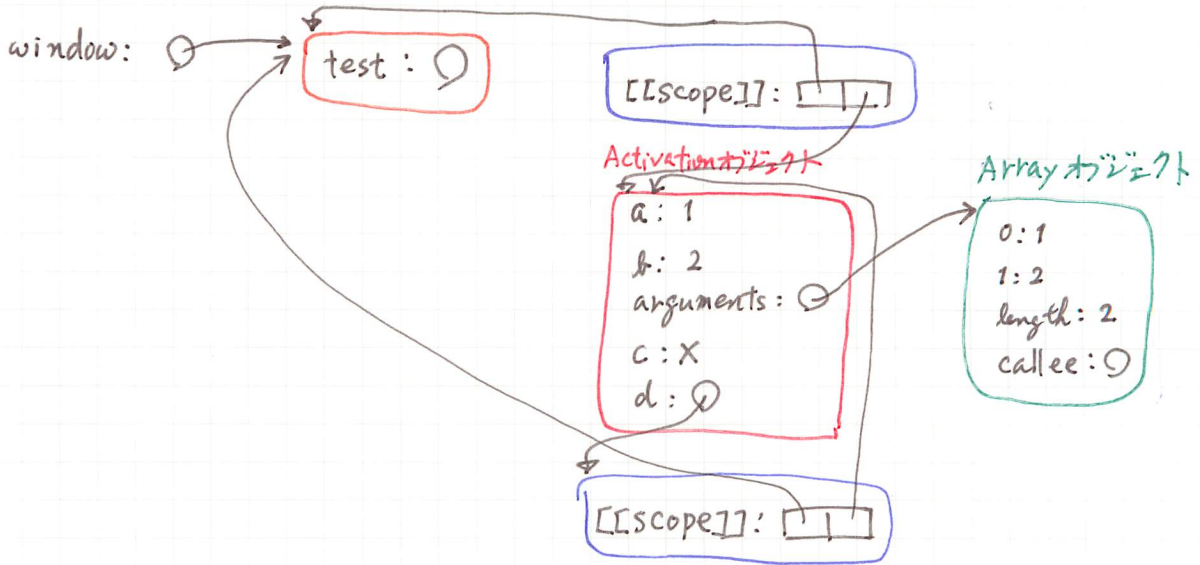 window:
test:
[[scope]]:
Activationオブジェクト
a: 1
b: 2
arguments:
c: X
d:
Arrayオブジェクト
0:1
1:2
length: 2
callee:
[[scope]]: